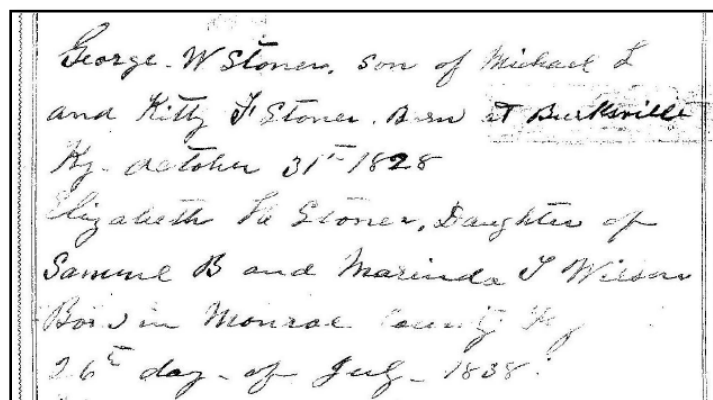 George. W Stoner. son of Michael L
and Kitty F Stoner. Born at Burksville
Ky. October 31st 1828
Elizabeth Stoner, Daughter of
Samuel B and Marinda T Wilson
Born in Monroe County Ky
26th day - of July - 1838.